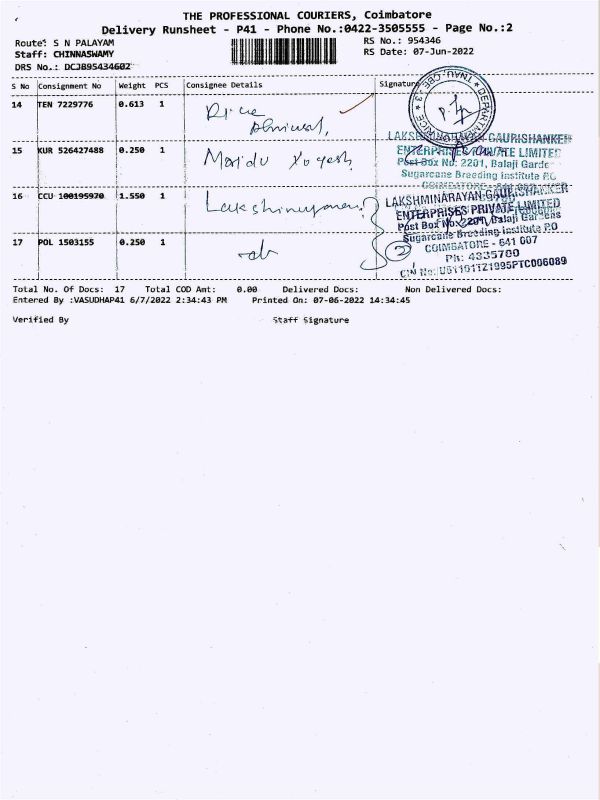 THE PROFESSIONAL COURIERS, Coimbatore
Delivery Runsheet - P41 - Phone No.:0422-3505555 - Page No.:2
Route: S N PALAYAM RS No.: 954346
Staff: CHINNASWAMY RS Date: 07-Jun-2022
DRS No.: DCJB95434602
S No Consignment No Weight PCS Consignee Details Signature
14 TEN 7229776 0.613 1
15 KUR 526427488 0.250 1
LAKSHMINARAYAN GAURISHANKER
ENTERPRISES PRIVATE LIMITED
Post Box No: 2201, Balaji Garde
Sugarcane Breeding Institute P.O
16 CCU 100195970 1.550 1
LAKSHMINARAYAN GAURISHANKER
ENTERPRISES PRIVATE LIMITED
Post Box No: 2201, Balaji Gardens
Sugarcane Breeding Institute P.O
COIMBATORE - 641 007
Ph: 4335700
17 POL 1503155 0.250 1
CIN No: U51101TZ1995PTC006089
Total No. Of Docs: 17 Total COD Amt: 0.00 Delivered Docs: Non Delivered Docs:
Entered By :VASUDHAP41 6/7/2022 2:34:43 PM Printed On: 07-06-2022 14:34:45
Verified By Staff Signature